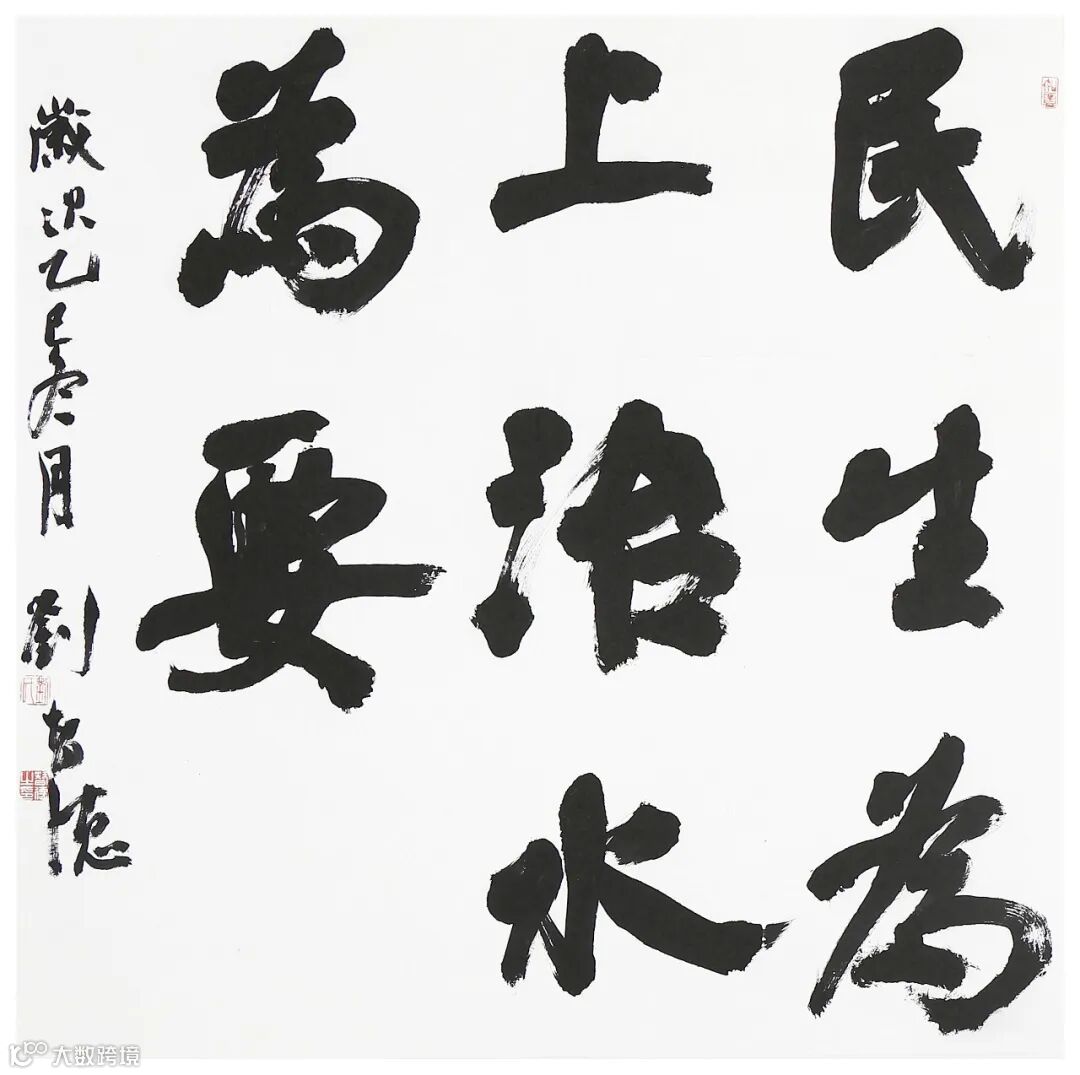 民生為
上治水
為要
歲次乙巳冬月 劉 德
大数跨境